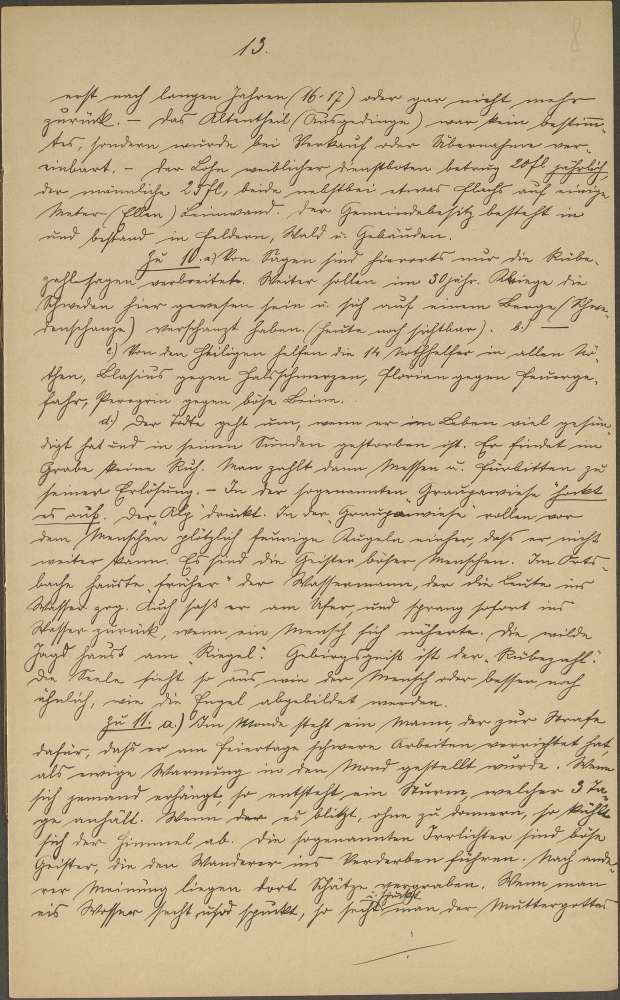 13.
8
erst nach langen Jahren (16-17) oder gar nicht mehr
zurück. – Das Altentheil (Ausgedinge) war kein bestimm-
tes, sondern wurde bei Verkauf oder Übernahme ver-
einbart. – Der Lohn weiblicher Dienstboten betrug 20fl jährlich,
der männliche 25fl, beide nebstbei etwas Flachs auf einige
Meter (Ellen) Leinwand. Der Gemeindebesitz besteht in
und bestand in Feldern, Wald u. Gebäuden.
Zu 10. a) Von Sagen sind hierorts nur die Rübe-
zahlsagen verbreitet. Weiter sollen im 30jähr. Kriege die
Schweden hier gewesen sein u. sich auf einem Berge (Schwe-
denschanze) verschanzt haben. (heute noch sichtbar). b.) —
c) Von den Heiligen helfen die 14 Nothhelfer in allen Nö-
then, Blasius gegen Halsschmerzen, Florian gegen Feuerge-
fahr, Peregrin gegen böse Beine.
d.) Der Todte geht um, wenn er im Leben viel gesün-
digt hat und in seinen Sünden gestorben ist. Er findet im
Grabe keine Ruh. Man zahlt dann Messen u. Fürbitten zu
seiner Erlösung. – In der sogenannten "Graupawiese" hockt
es auf. Der Alp drückt. In der "Graupawiese" rollen vor
dem Menschen plötzlich feurige Kugeln einher, dass er nicht
weiter kann. Es sind die Geister böser Menschen. Im Orts-
bache hauste "früher" der Wassermann, der die Leute ins
Wasser zog. Auch saß er am Ufer, und sprang sofort ins
Wasser zurück, wenn ein Mensch sich näherte. Die wilde
Jagd haust am "Riegel". Gebirgsgeist ist der "Rübezahl".
Die Seele sieht so aus, wie der Mensch oder besser noch
ähnlich, wie die Engel abgebildet werden.
Zu 11. a.) Im Monde steht ein Mann, der zur Strafe
dafür, dass er am Feiertage schwere Arbeiten verrichtet hat,
als ewige Warnung in den Mond gestellt wurde. Wenn
sich jemand erhängt, so entsteht ein Sturm, welcher 3 Ta-
ge anhält. Wenn der es blitzt, ohne zu donnern, so kühlt
sich der Himmel ab. Die sogenannten Irrlichter sind böse
Geister, die den Wanderer ins Verderben führen. Nach ande-
rer Meinung liegen dort Schätze vergraben. Wenn man
Wasser und spuckt, so man der Muttergottes